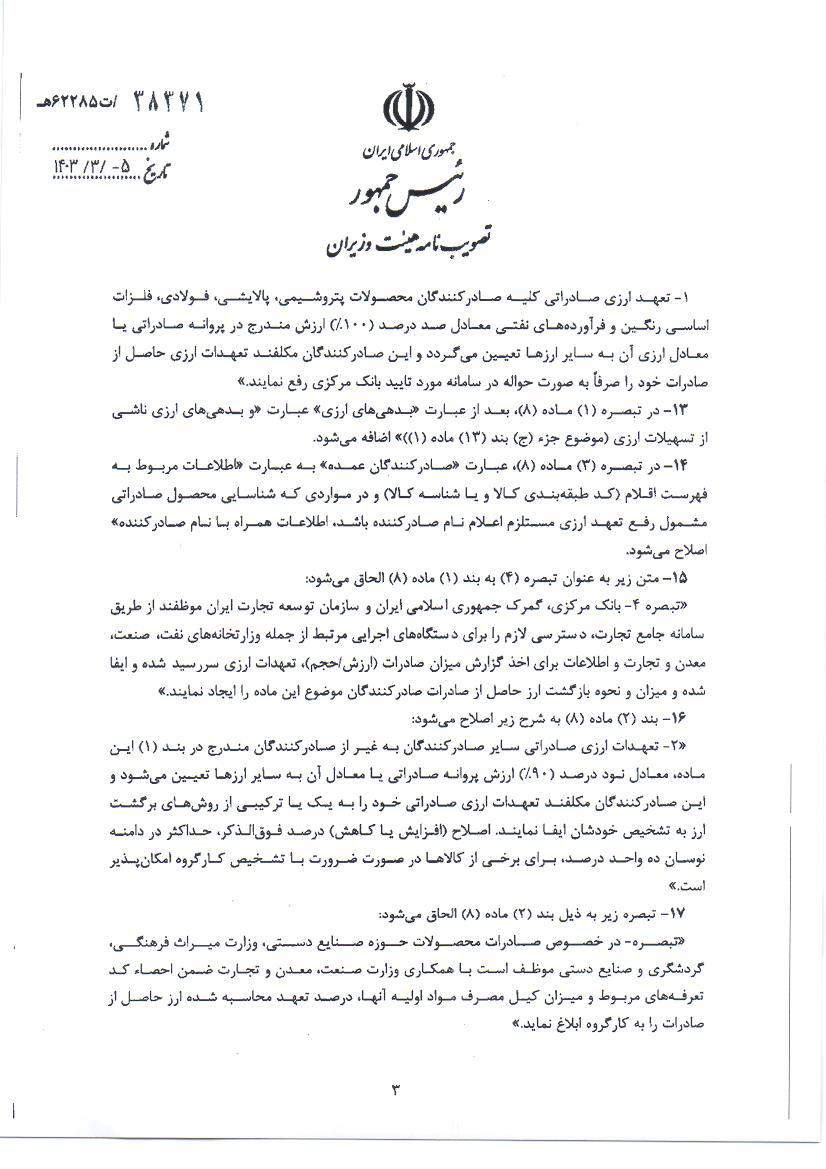 ۳۸۳۷۱ /ت۶۲۲۸۵هـ
شماره
تاریخ ۱۴۰۳/۳/-۵
جمهوری اسلامی ایران
رئیس جمهور
تصویب نامه هیئت وزیران
۱- تعهد ارزی صادراتی کلیه صادرکنندگان محصولات پتروشیمی، پالایشی، فولادی، فلزات
اساسی رنگین و فرآورده‌های نفتی معادل صد درصد (۱۰۰٪) ارزش مندرج در پروانه صادراتی یا
معادل ارزی آن به سایر ارزها تعیین می‌گردد و این صادرکنندگان مکلفند تعهدات ارزی حاصل از
صادرات خود را صرفاً به صورت حواله در سامانه مورد تایید بانک مرکزی رفع نمایند.»
۱۳- در تبصره (۱) ماده (۸)، بعد از عبارت «بدهی‌های ارزی» عبارت «و بدهی‌های ارزی ناشی
از تسهیلات ارزی (موضوع جزء (ج) بند (۱۳) ماده (۱))» اضافه می‌شود.
۱۴- در تبصره (۳) ماده (۸)، عبارت «صادرکنندگان عمده» به عبارت «اطلاعات مربوط به
فهرست اقلام (کد طبقه‌بندی کالا و یا شناسه کالا) و در مواردی که شناسایی محصول صادراتی
مشمول رفع تعهد ارزی مستلزم اعلام نام صادرکننده باشد، اطلاعات همراه با نام صادرکننده»
اصلاح می‌شود.
۱۵- متن زیر به عنوان تبصره (۴) به بند (۱) ماده (۸) الحاق می‌شود:
«تبصره ۴- بانک مرکزی، گمرک جمهوری اسلامی ایران و سازمان توسعه تجارت ایران موظفند از طریق
سامانه جامع تجارت، دسترسی لازم را برای دستگاه‌های اجرایی مرتبط از جمله وزارتخانه‌های نفت، صنعت،
معدن و تجارت و اطلاعات برای اخذ گزارش میزان صادرات (ارزش/حجم)، تعهدات ارزی سررسید شده و ایفا
شده و میزان و نحوه بازگشت ارز حاصل از صادرات صادرکنندگان موضوع این ماده را ایجاد نمایند.»
۱۶- بند (۲) ماده (۸) به شرح زیر اصلاح می‌شود:
«۲- تعهدات ارزی صادراتی سایر صادرکنندگان به غیر از صادرکنندگان مندرج در بند (۱) این
ماده، معادل نود درصد (۹۰٪) ارزش پروانه صادراتی یا معادل آن به سایر ارزها تعیین می‌شود و
این صادرکنندگان مکلفند تعهدات ارزی صادراتی خود را به یک یا ترکیبی از روش‌های برگشت
ارز به تشخیص خودشان ایفا نمایند. اصلاح (افزایش یا کاهش) درصد فوق‌الذکر، حداکثر در دامنه
نوسان ده واحد درصد، برای برخی از کالاها در صورت ضرورت با تشخیص کارگروه امکان‌پذیر
است.»
۱۷- تبصره زیر به ذیل بند (۲) ماده (۸) الحاق می‌شود:
«تبصره- در خصوص صادرات محصولات حوزه صنایع دستی، وزارت میراث فرهنگی،
گردشگری و صنایع دستی موظف است با همکاری وزارت صنعت، معدن و تجارت ضمن احصاء کد
تعرفه‌های مربوط و میزان کیل مصرف مواد اولیه آنها، درصد تعهد محاسبه شده ارز حاصل از
صادرات را به کارگروه ابلاغ نماید.»
۳